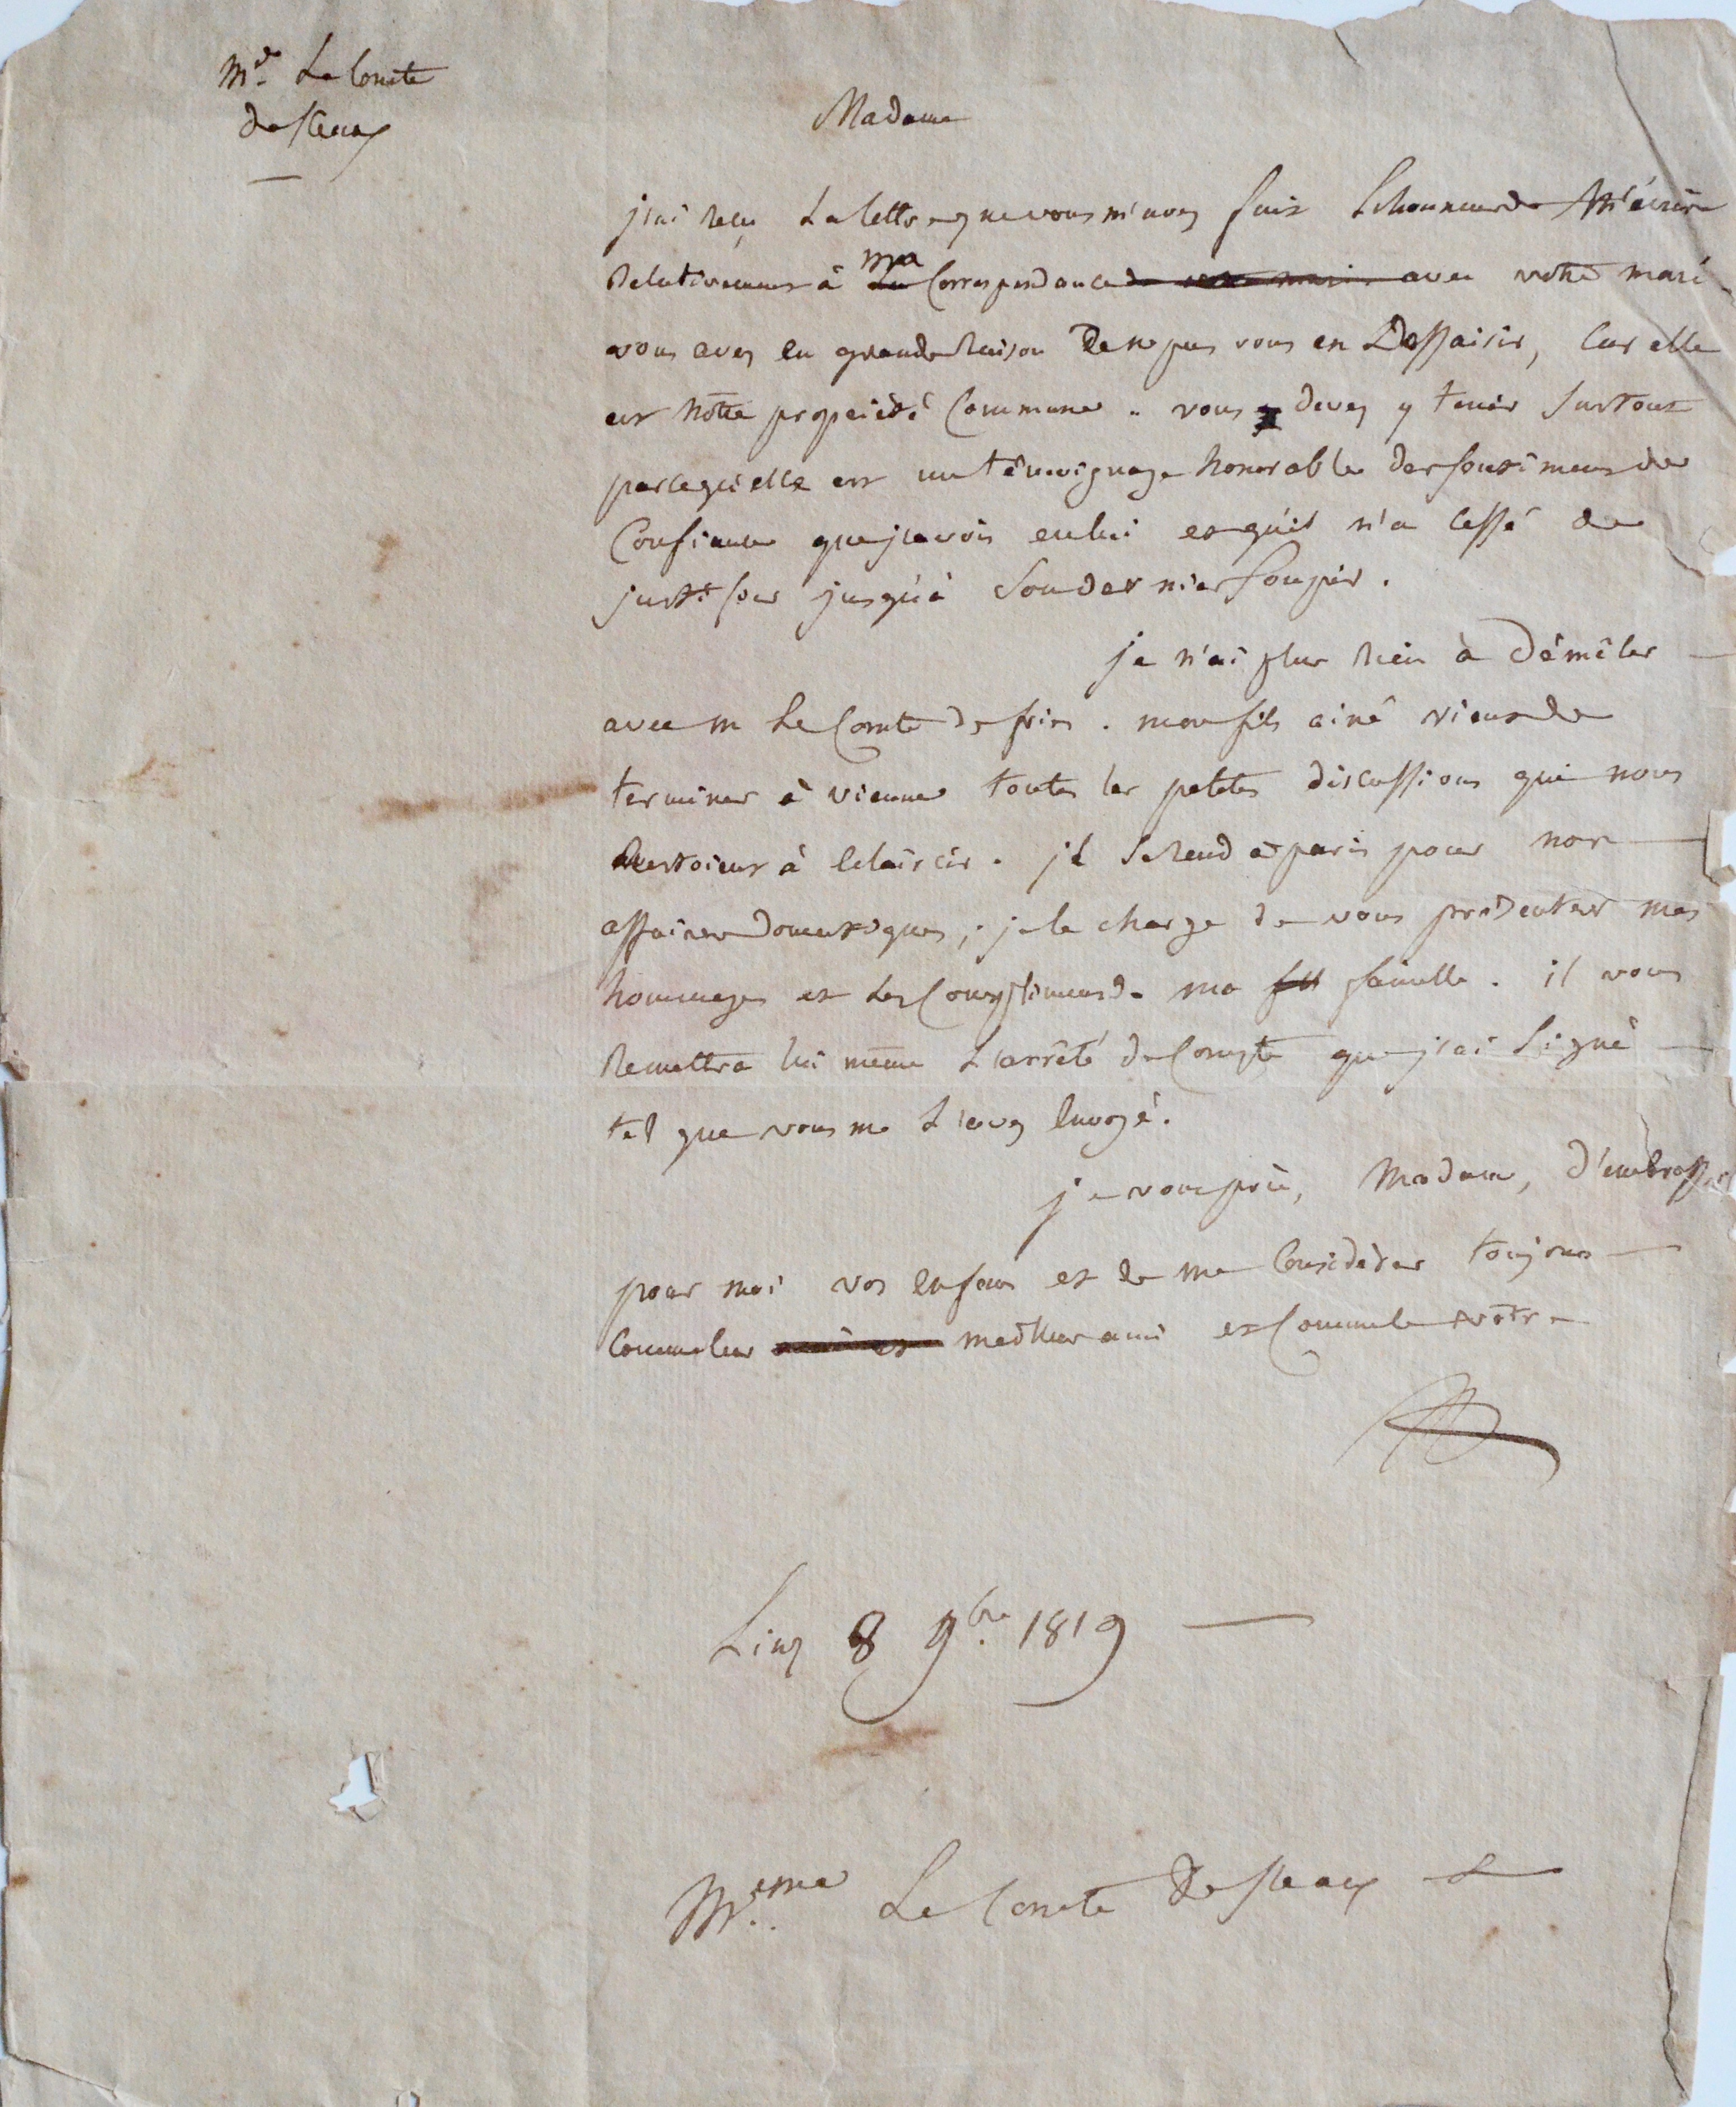 Md. Le Comte
de fleau
Madame
j'ai reçu La lettre que vous m'avez fait L'honneur de M'écrire
Relativement à ma La Correspondance de votre mari avec votre mari
vous avez eu grande Raison De ne pas vous en Dessaisir, Car elle
est Notre propriété Commune. vous devez y tenir Surtout
parcequ'elle est un témoignage honorable des sentimens de
Confiance que j'avois en lui et qu'il n'a Cessé de
justifier jusqu'à Son dernier Soupir.
je n'ai plus Rien à Démêler
avec m Le Comte de fries. mon fils ainé vient de
terminer à vienne toutes les petites discussions qui nous
Restoient à Eclaircir. il Se Rend à paris pour nos
affaires domestiques, je le charge de vous présenter mes
hommages et Les Complimens de ma fa famille. il vous
Remettra lui même L'arrêté de Compte que j'ai Signé
tel que vous me L'avez Envoyé.
je vous prie, Madame, d'embrasser
pour moi vos Enfans et de me Considérer toujours
Comme leur meilleur ami et Comme le votre
Linz 8 9bre 1819
Mme Le Comte De fleau